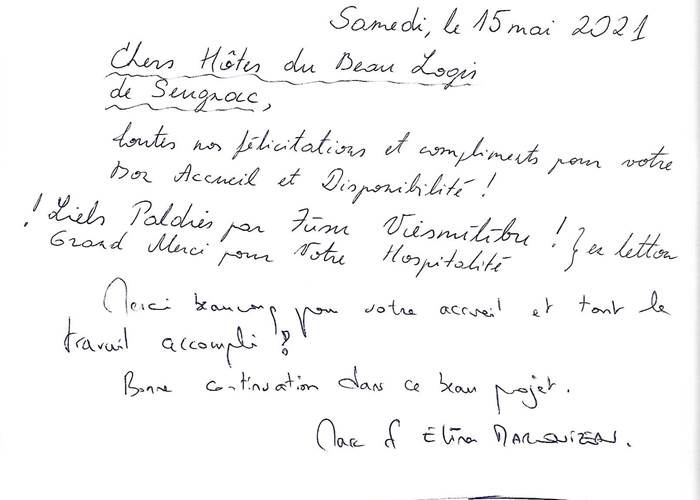 Samedi, le 15 mai 2021
Chers Hôtes du Beau Logis
de Seugnac,
toutes nos félicitations et compliments pour votre
Bon Accueil et Disponibilité !
! Liels Paldies par Jūsu Viesmīlību ! } en letton
Grand Merci pour Votre Hospitalité
Merci beaucoup pour votre accueil et tout le
travail accompli !
Bonne continuation dans ce beau projet.
Marc & Elīna